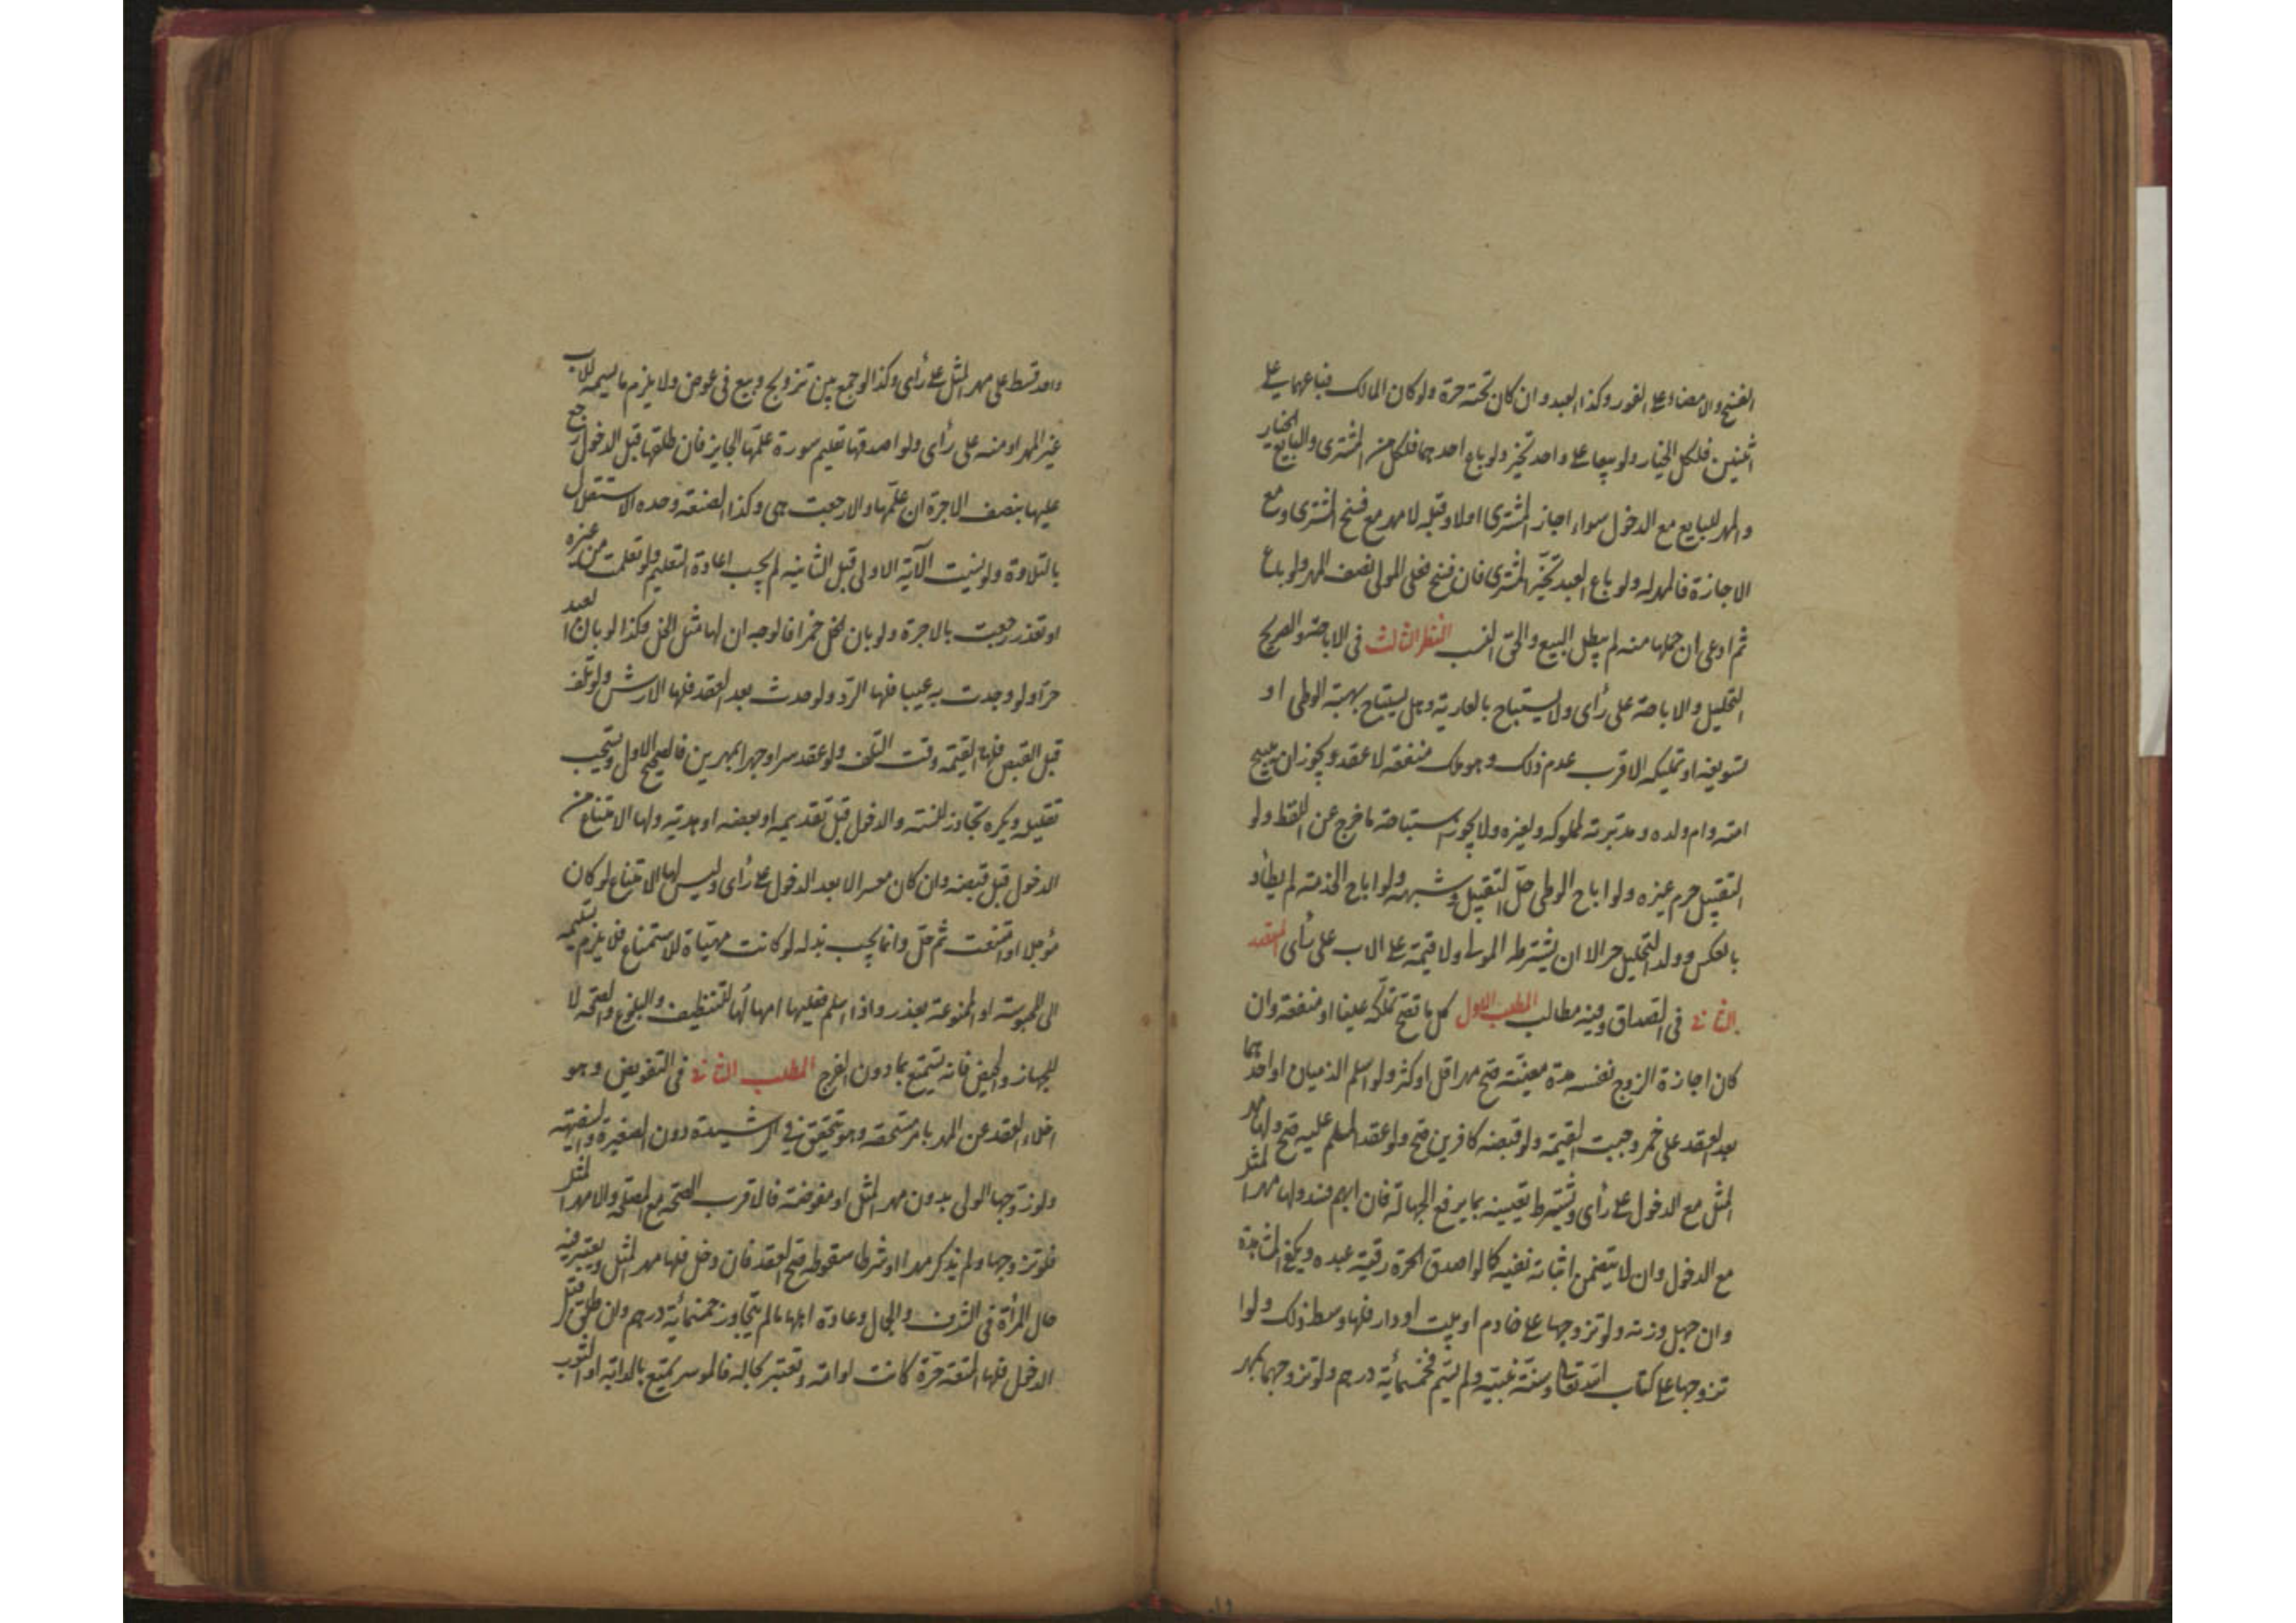 الفسخ والامضاء على الفور وكذا العبد وان كان تحته حرة ولو كان المالك فباعهما على
اثنين فلكل الخيار ولو بيعا على واحد تخير ولو باع احدهما فلكل من المشترى والبايع الخيار
والمهر للبايع مع الدخول سواء اجاز المشترى اولا وقبله لا مهر مع فسخ المشترى ومع
الاجازة فالمهر له ولو باع العبد تخير المشترى فان فسخ فعلى المولى نصف المهر ولو باع
ثم ادعى ان حملها منه لم يبطل البيع والحق النسب النظر الثالث فى الاباحة والصريح
التحليل والاباحة على رأى ولا يستباح بالعارية وهل يستباح بهبة الوطى او
تسويغه او تمليكه الاقرب عدم ذلك وهو ملك منفعة لا عقد ويجوز ان يبيح
امته وام ولده ومدبرته لمملوكه ولغيره ولا يجوز استباحة ما خرج عن اللفظ ولو
التقبيل حرم غيره ولو اباح الوطى حل التقبيل وشبهه ولو اباح الخدمة لم يطأ و
بالعكس وولد التحليل حر الا ان يشترط المولى ولا قيمة على الاب على رأى المقصد
الثانى فى الصداق وفيه مطالب المطلب الاول كل ما تصح تملكه عينا او منفعة وان
كان اجازة الزوج نفسه مدة معينة صح مهرا قل او كثر ولو اسلم الذميان او احدهما
بعد العقد على خمر وجبت القيمة ولو قبضه كافرين صح ولو عقد المسلم عليه صح ولها مهر
المثل مع الدخول على رأى ويشترط تعيينه بما يرفع الجهالة فان ابهم فسد ولها مهر المثل
مع الدخول وان لا يتضمن اثباته نفيه كما لو اصدق الحرة رقبة عبده ويكفى المشاهدة
وان جهل وزنه ولو تزوجها على خادم او بيت او دار فلها وسط ذلك ولو ا
تزوجها على كتاب الله تعالى وسنة نبيه ولم يسم فخمسمائة درهم ولو تزوجهما بمهر
واحد قسط على مهر المثل على رأى وكذا لو جمع بين تزويج وبيع فى عوض ولا يلزم ما يسميه للاب
غير المهر او منه على رأى ولو اصدقها تعليم سورة علمها الجايز فان طلقها قبل الدخول رجع
عليها بنصف الاجرة ان علمها والا رجعت هى وكذا الصنعة وحده الاستقلال
بالتلاوة ولو نسيت الآية الاولى قبل الثانية لم يجب اعادة التعليم ولو تعلمت من غيره
او تعذر رجعت بالاجرة ولو بان الخل خمرا فالوجه ان لها مثل الخل وكذا لو بان العبد
حرا ولو وجدت به عيبا فلها الرد ولو حدث بعد العقد فلها الارش ولو تلف
قبل القبض فلها القيمة وقت التلف ولو عقد سرا وجهرا بمهرين فالصحيح الاول ويستحب
تقليله ويكره تجاوز السنة والدخول قبل تقديمه او بعضه او هدية ولها الامتناع من
الدخول قبل قبضه وان كان معسرا لا بعد الدخول على رأى وليس لها الامتناع لو كان
مؤجلا او امتنعت ثم حل وانما يجب بذله لو كانت مهيأة للاستمتاع فلا يلزم تسليمه
الى المحبوسة او الممنوعة بعذر واذا اسلم فعليها امهالها للتنظيف والبلوغ والصحة لا
للجهاز والحيض فانه يستمتع بما دون الفرج المطلب الثانى فى التفويض وهو
اخلاء العقد عن المهر بامر مستحقه وهو يتحقق فى الرشيدة دون الصغيرة والسفيهة
ولو زوجها الولى بدون مهر المثل او مفوضة فالاقرب الصحة مع المصلحة والا مهر المثل
فلو تزوجها ولم يذكر مهرا او شرط سقوطه صح العقد فان دخل فلها مهر المثل ويعتبر فيه
حال المرأة فى الشرف والجمال وعادة اهلها ما لم يتجاوز خمسمائة درهم وان طلق قبل
الدخول فلها المتعة حرة كانت او امة وتعتبر بحاله فالموسر يمتع بالدابة او الثوب